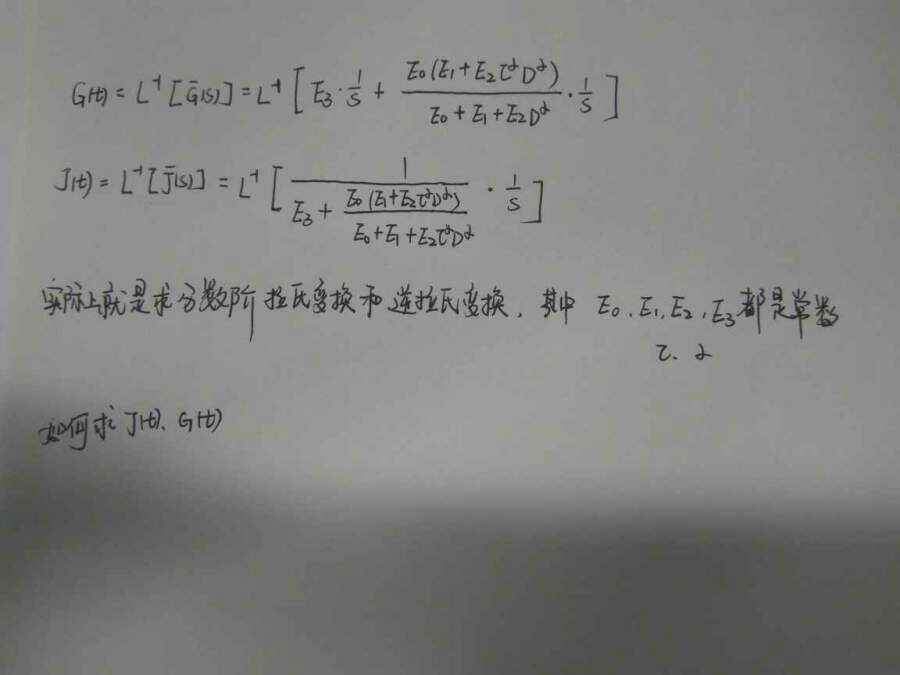 G(t) = L⁻¹[Ḡ(s)] = L⁻¹[E₃·1/S + E₀(E₁+E₂τᵅDᵅ)/(E₀+E₁+E₂Dᵅ)·1/S]
J(t) = L⁻¹[J̄(s)] = L⁻¹[1/(E₃+E₀(E₁+E₂τᵅDᵅ)/(E₀+E₁+E₂τᵅDᵅ))·1/S]
实际上就是求分数阶拉氏变换和逆拉氏变换，其中 E₀、E₁、E₂、E₃都是常数
τ、α
如何求 J(t)、G(t)